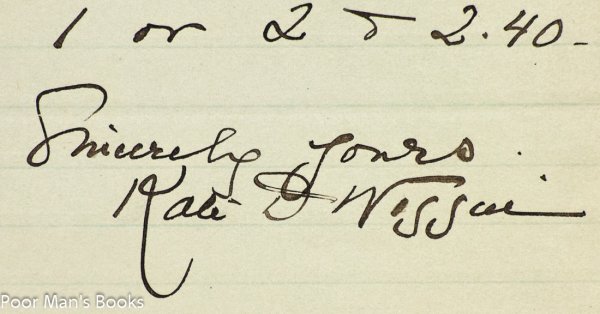 1 or 2 to 2.40-
Sincerely yours.
Kate D Wiggin
Poor Man's Books